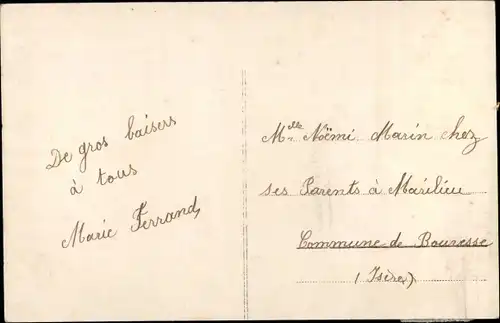 De gros baisers
à tous
Marie Ferrand,
Mlle Noëmi Marin chez
ses Parents à Marilieu
Commune de Bouresse
(Isère)